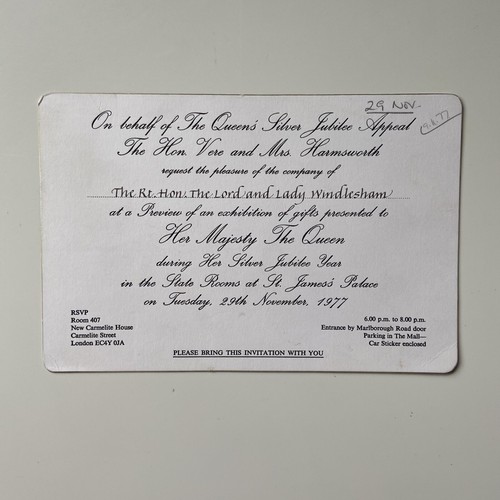 29 NOV.
On behalf of The Queen's Silver Jubilee Appeal
The Hon. Vere and Mrs. Harmsworth
request the pleasure of the company of
The Rt. Hon. The Lord and Lady Windlesham
at a Preview of an exhibition of gifts presented to
Her Majesty The Queen
during Her Silver Jubilee Year
in the State Rooms at St. James's Palace
on Tuesday, 29th November, 1977
RSVP
Room 407
New Carmelite House
Carmelite Street
London EC4Y 0JA
6.00 p.m. to 8.00 p.m.
Entrance by Marlborough Road door
Parking in The Mall—
Car Sticker enclosed
PLEASE BRING THIS INVITATION WITH YOU